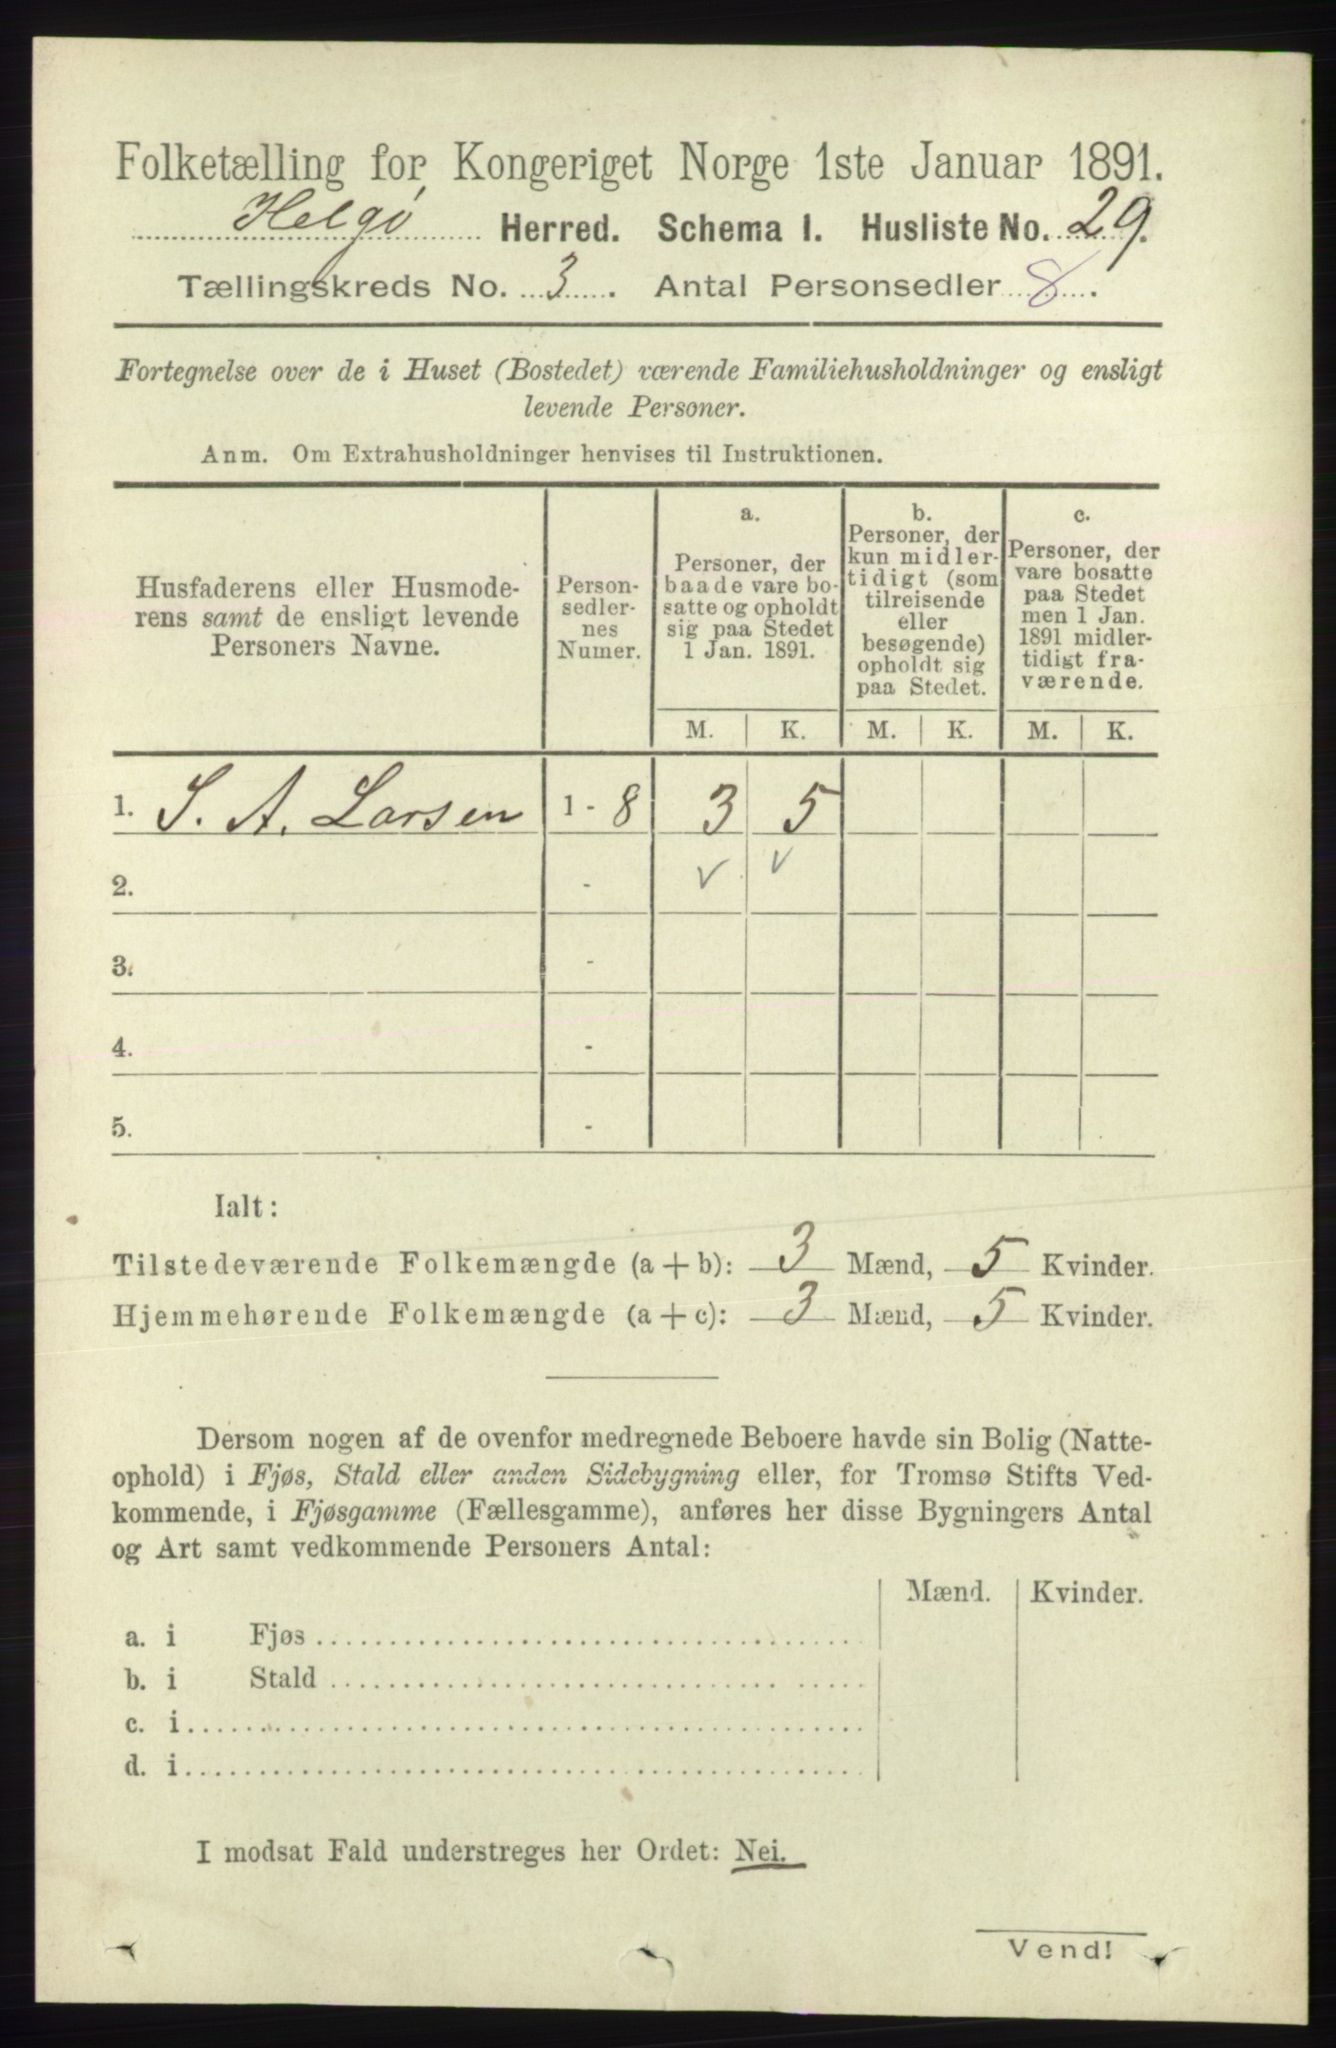 Folketælling for Kongeriget Norge 1ste Januar 1891.
Helgø Herred. Schema I. Husliste No. 29.
Tællingskreds No. 3. Antal Personsedler 8.
Fortegnelse over de i Huset (Bostedet) værende Familiehusholdninger og ensligt
levende Personer.
Anm. Om Extrahusholdninger henvises til Instruktionen.
Husfaderens eller Husmode-
rens samt de ensligt levende
Personers Navne.
Person-
sedler-
nes
Numer.
a.
Personer, der
baade vare bo-
satte og opholdt
sig paa Stedet
1 Jan. 1891.
b.
Personer, der
kun midler-
tidigt (som
tilreisende
eller
besøgende)
opholdt sig
paa Stedet.
c.
Personer, der
vare bosatte
paa Stedet
men 1 Jan.
1891 midler-
tidigt fra-
værende.
M. K. M. K. M. K.
1. S. A. Larsen 1 - 8 3 5
2. - ✓ ✓
3. -
4. -
5. -
Ialt:
Tilstedeværende Folkemængde (a + b): 3 Mænd, 5 Kvinder.
Hjemmehørende Folkemængde (a + c): 3 Mænd, 5 Kvinder.
Dersom nogen af de ovenfor medregnede Beboere havde sin Bolig (Natte-
ophold) i Fjøs, Stald eller anden Sidebygning eller, for Tromsø Stifts Ved-
kommende, i Fjøsgamme (Fællesgamme), anføres her disse Bygningers Antal
og Art samt vedkommende Personers Antal:
Mænd. Kvinder.
a. i Fjøs
b. i Stald
c. i
d. i
I modsat Fald understreges her Ordet: Nei.
Vend!